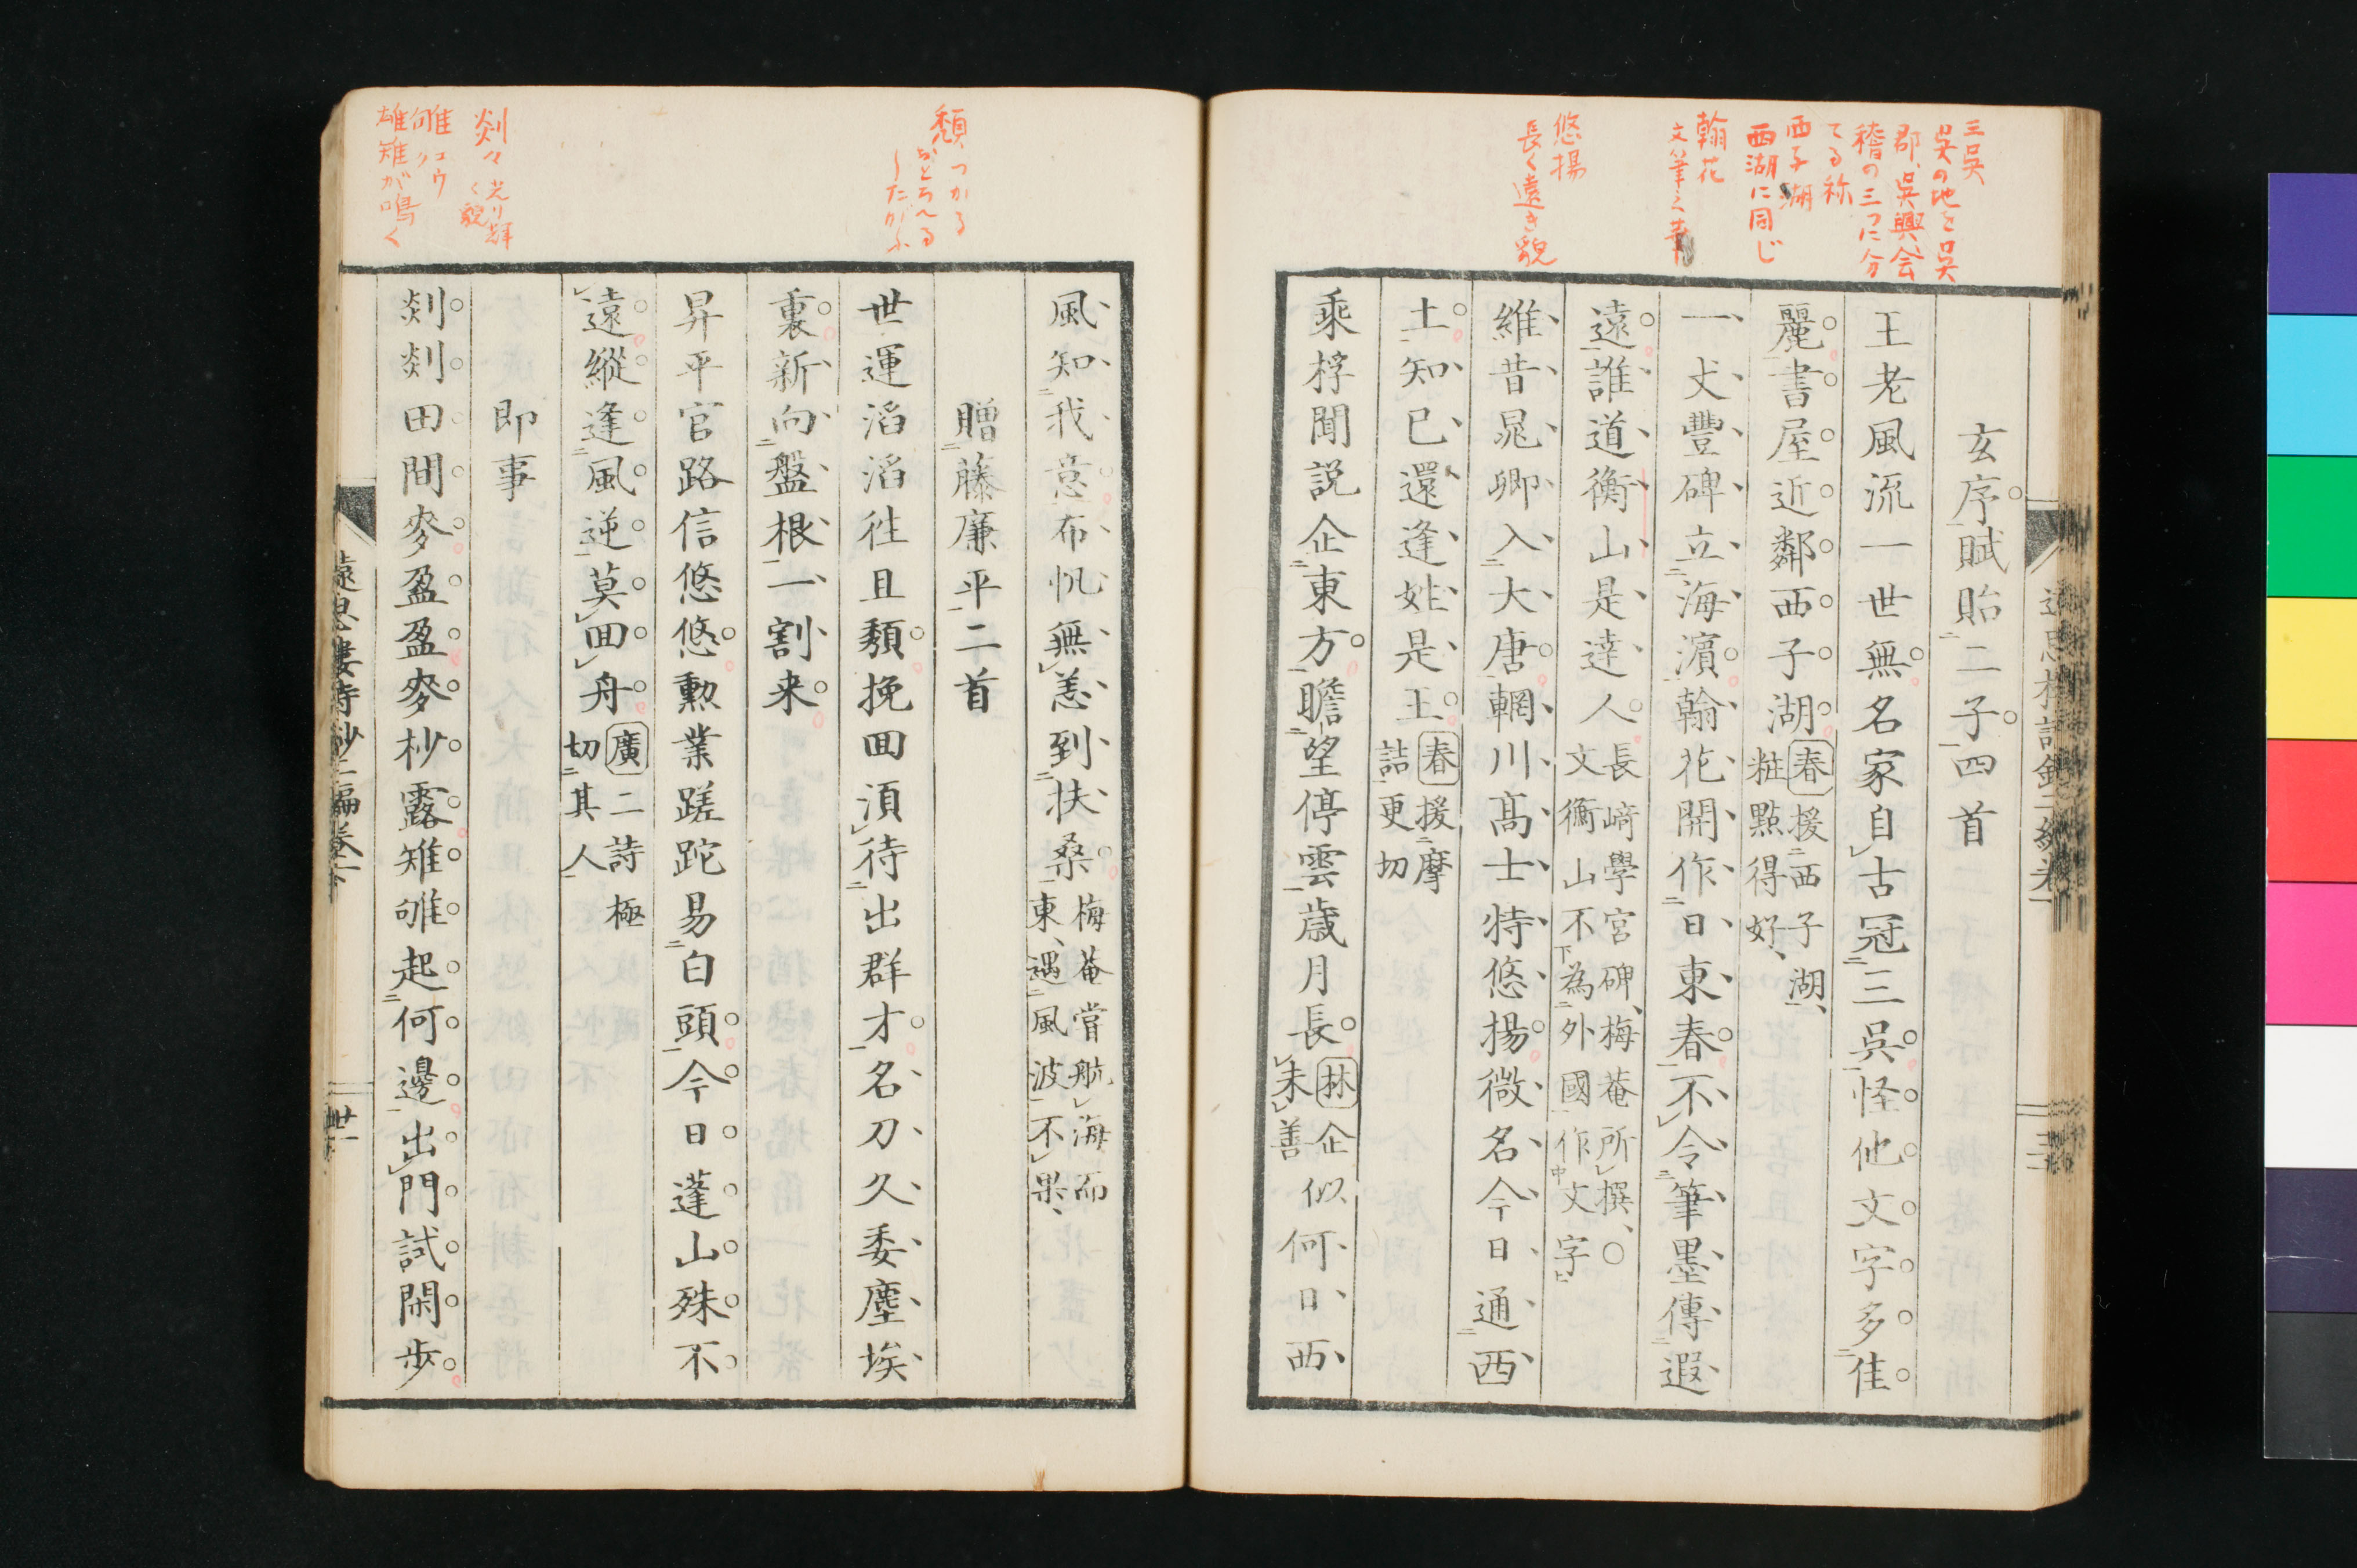 三吳
吳の地を吳
郡、吳興、会
稽の三つに分
てる称
西子湖
西湖に同じ
翰花
悠揚
長く遠き貌
玄序賦貽二子四首
王老風流一世無名家自古冠三吳怪他文字多佳
麗書屋近鄰西子湖
春援西子湖、
粧點得好、
一丈豐碑立海濱翰花開作日東春不令筆墨傳遐
遠誰道衡山是達人
長﨑學宮碑、梅菴所撰、○
文衡山不為外國作文字
維昔晁卿入大唐輞川高士特悠揚微名今日通西
土知己還逢姓是王
春援摩
詰更切
乘桴聞説企東方瞻望停雲歳月長
林企似
未善
何日西
風知我意布帆無恙到扶桑
梅菴嘗航海而
東、遇風波不果、
贈藤廉平二首
世運滔滔往且頽挽回須待出群才名刀久委塵埃
裏新向盤根一割来
昇平官路信悠悠勲業蹉跎易白頭今日蓬山殊不
遠縱逢風逆莫回舟
廣二詩極
切其人
即事
剡剡田間麥盈盈麥杪露雉雊起何邊出門試閑歩
頽、つかる
おとろへる
したがふ
剡々 光り輝
く貌
雊
雄雉が鳴く
遠思樓詩鈔二編卷下